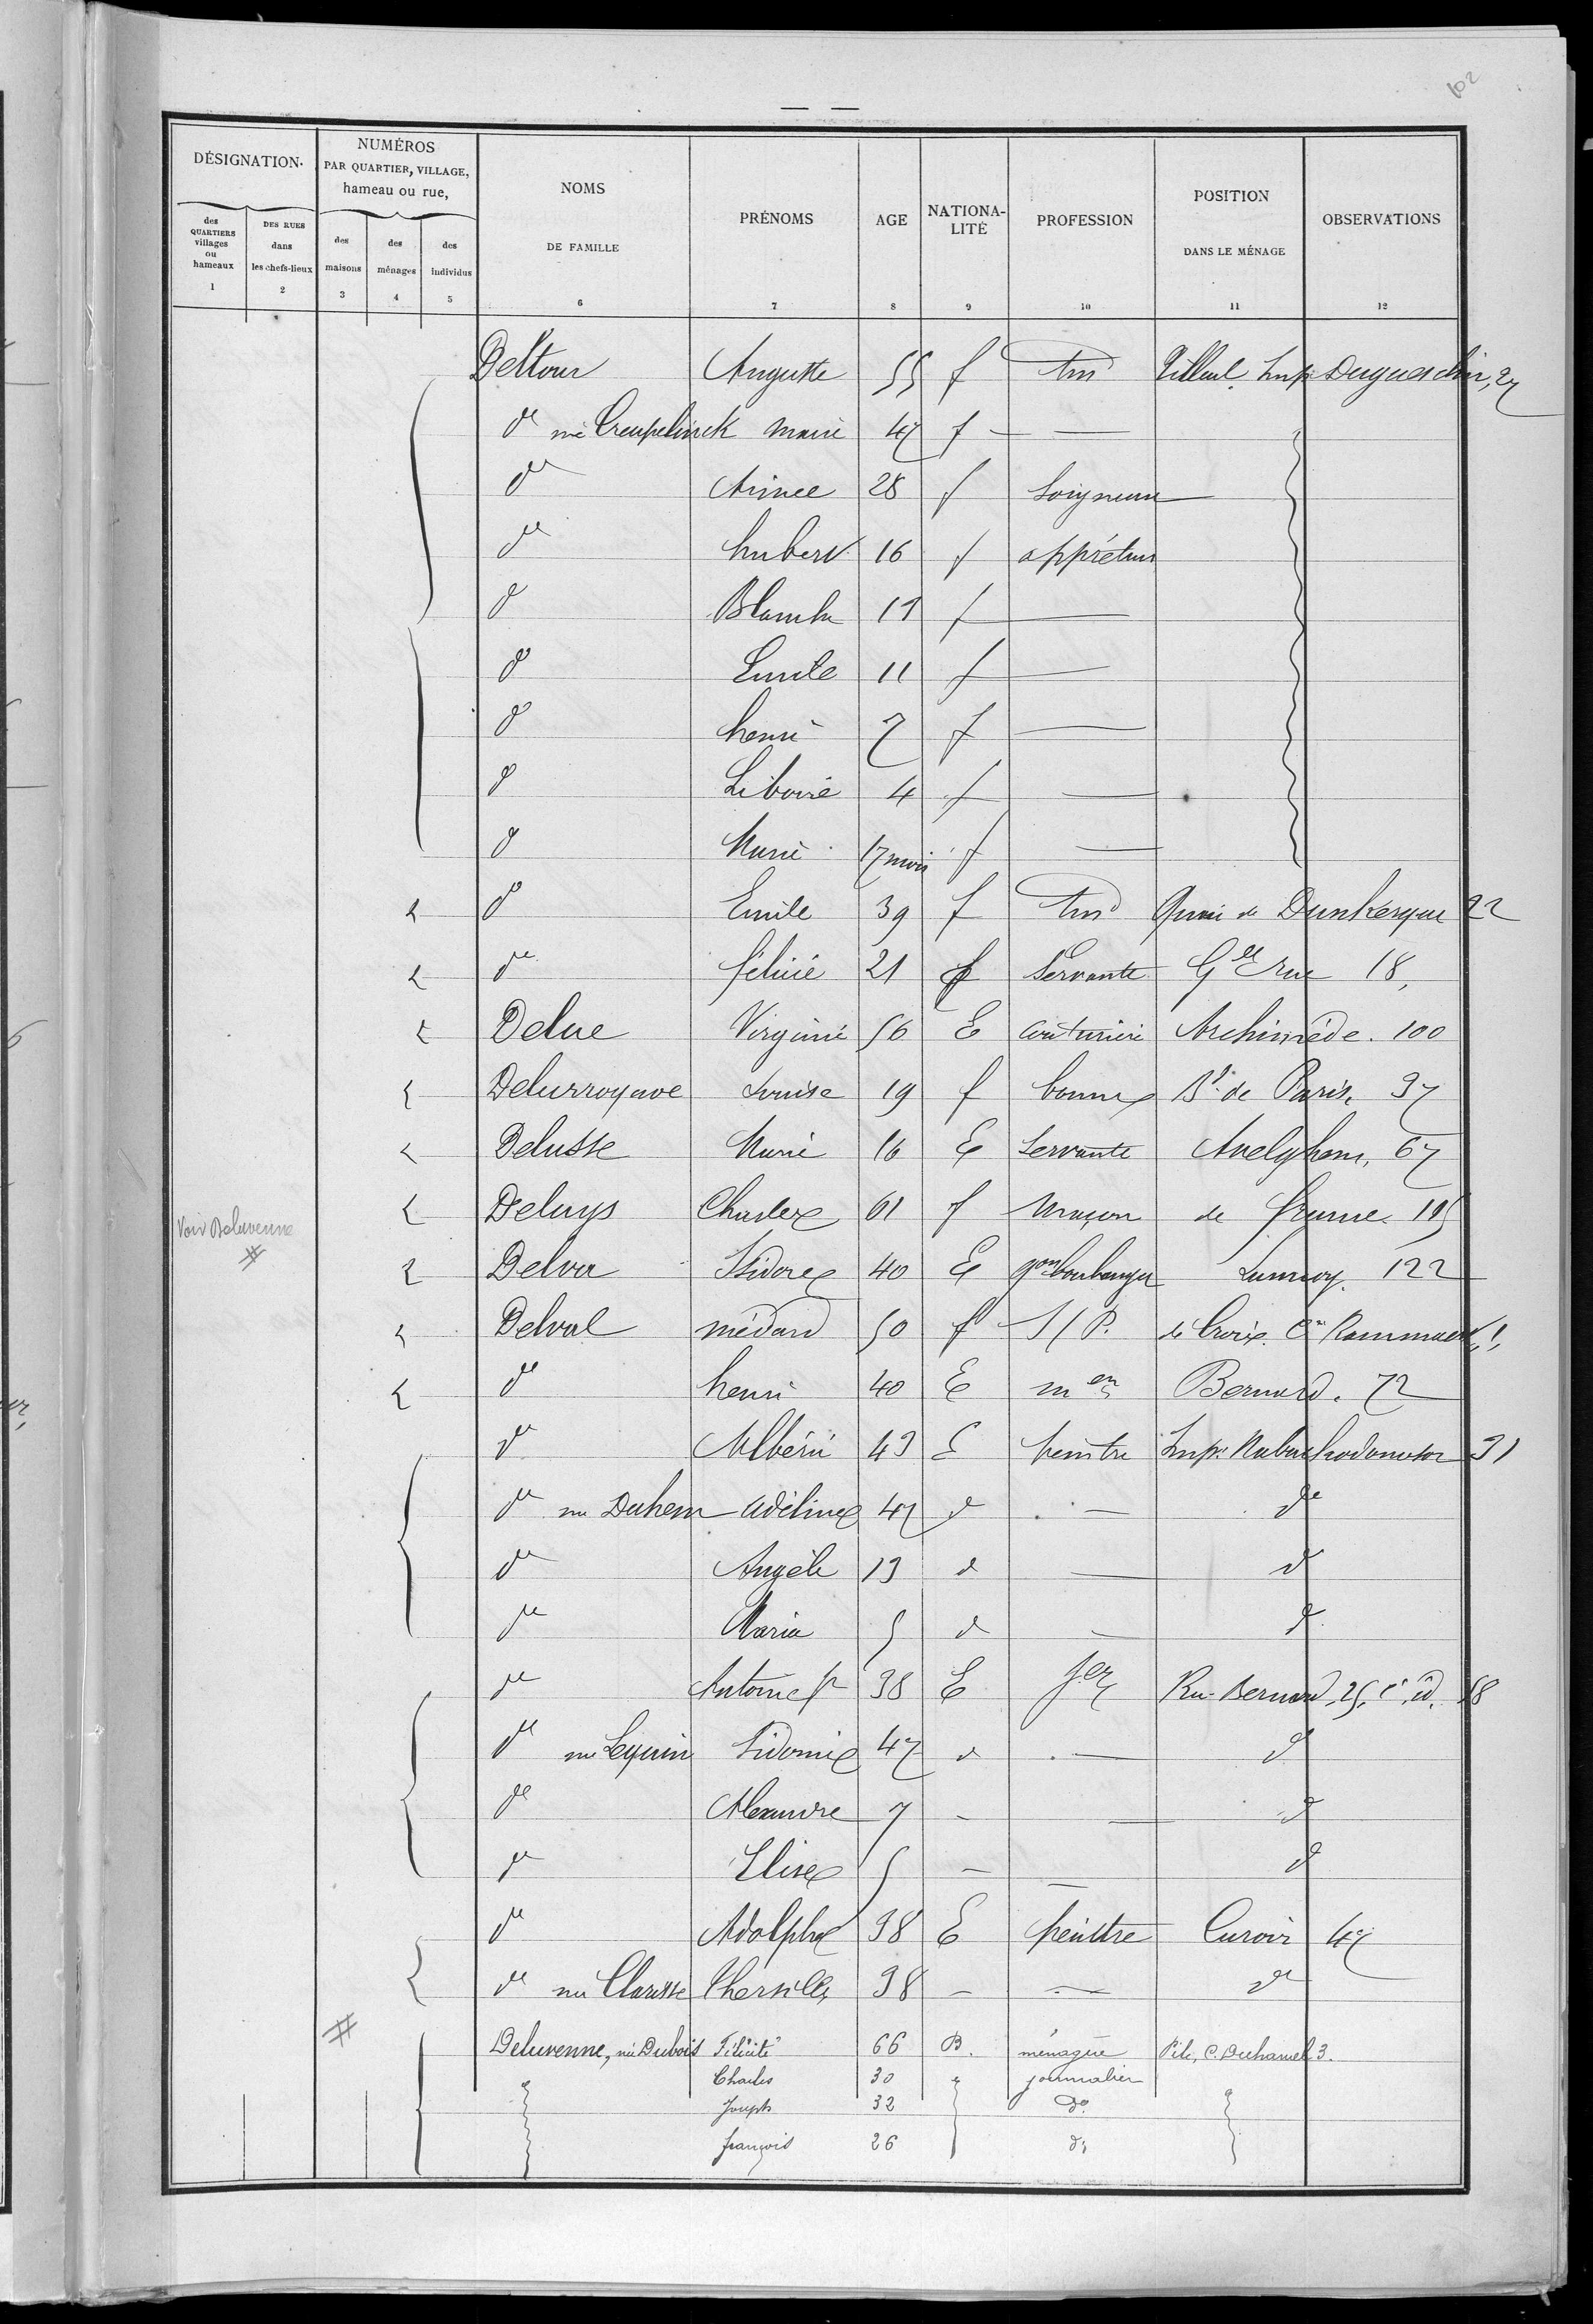 102
DÉSIGNATION
NUMÉROS PAR QUARTIER, VILLAGE, hameau ou rue,
des QUARTIERS villages ou hameaux 1
DES RUES dans les chefs-lieux 2
des maisons 3
des ménages 4
des individus 5
NOMS DE FAMILLE 6
PRÉNOMS 7
AGE 8
NATIONALITÉ 9
PROFESSION 10
POSITION DANS LE MÉNAGE 11
OBSERVATIONS 12
Deltour Auguste 55 f Tilleul Imp Duguesclin, 27
de née Creupelinck Marie 47 f —
de Aimée 28 f Soigneuse
de hubert 16 f apprêteur
d Blanche f —
d Emile 11 f —
d henri 7 f —
d Liboire 4 f —
d Marie 17 mois f —
d Emile 39 f Quai de Dunkerque 22
de félicie 21 f Servante Gde rue 18,
Delue Virginie 56 E couturière Archimède. 100
Delurroyave Louise 19 f bonne Bd de Paris, 37
Delusse Marie 16 E Servante Avelghem, 67
Deluys Charles 61 f maçon de frenne 105
Voir Deluvenne #
Delva Isidore 40 E gon boulanger Lannoy. 122
Delval médard 50 f S/P. de Croix. Con
d henri 40 E men Bernard. 72
de Albéric 43 E peintre Imp. 31
de née Duhem Adéline d — de
de Angèle 13 d — d
de Maria 5 d — d
de 38 E jer Rue Bernard, 25, 18
de née Lequin Sidonie 47 d — d
de Alexandre 7 — — d
d Elise 5 — — d
de Adolphe 38 E peintre Curoir 47
de née Clarisse 38 — — de
# Deluvenne, née Dubois Félicité 66 B. ménagère Pile, C. Duhamel 3.
Charles 30 journalier
Joseph 32 do
françois 26 do